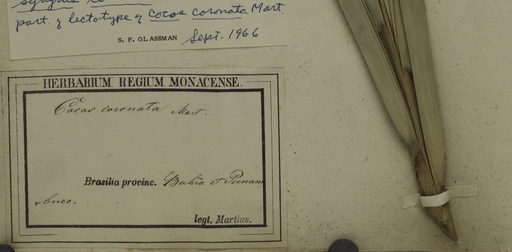 part. of lectotype of Cocos coronata Mart.
S. F. GLASSMAN Sept. 1966
HERBARIUM REGIUM MONACENSE.
Cocos coronata Mart.
Brasilia provinc. Bahia et Pernam
buco.
legt. Martius.